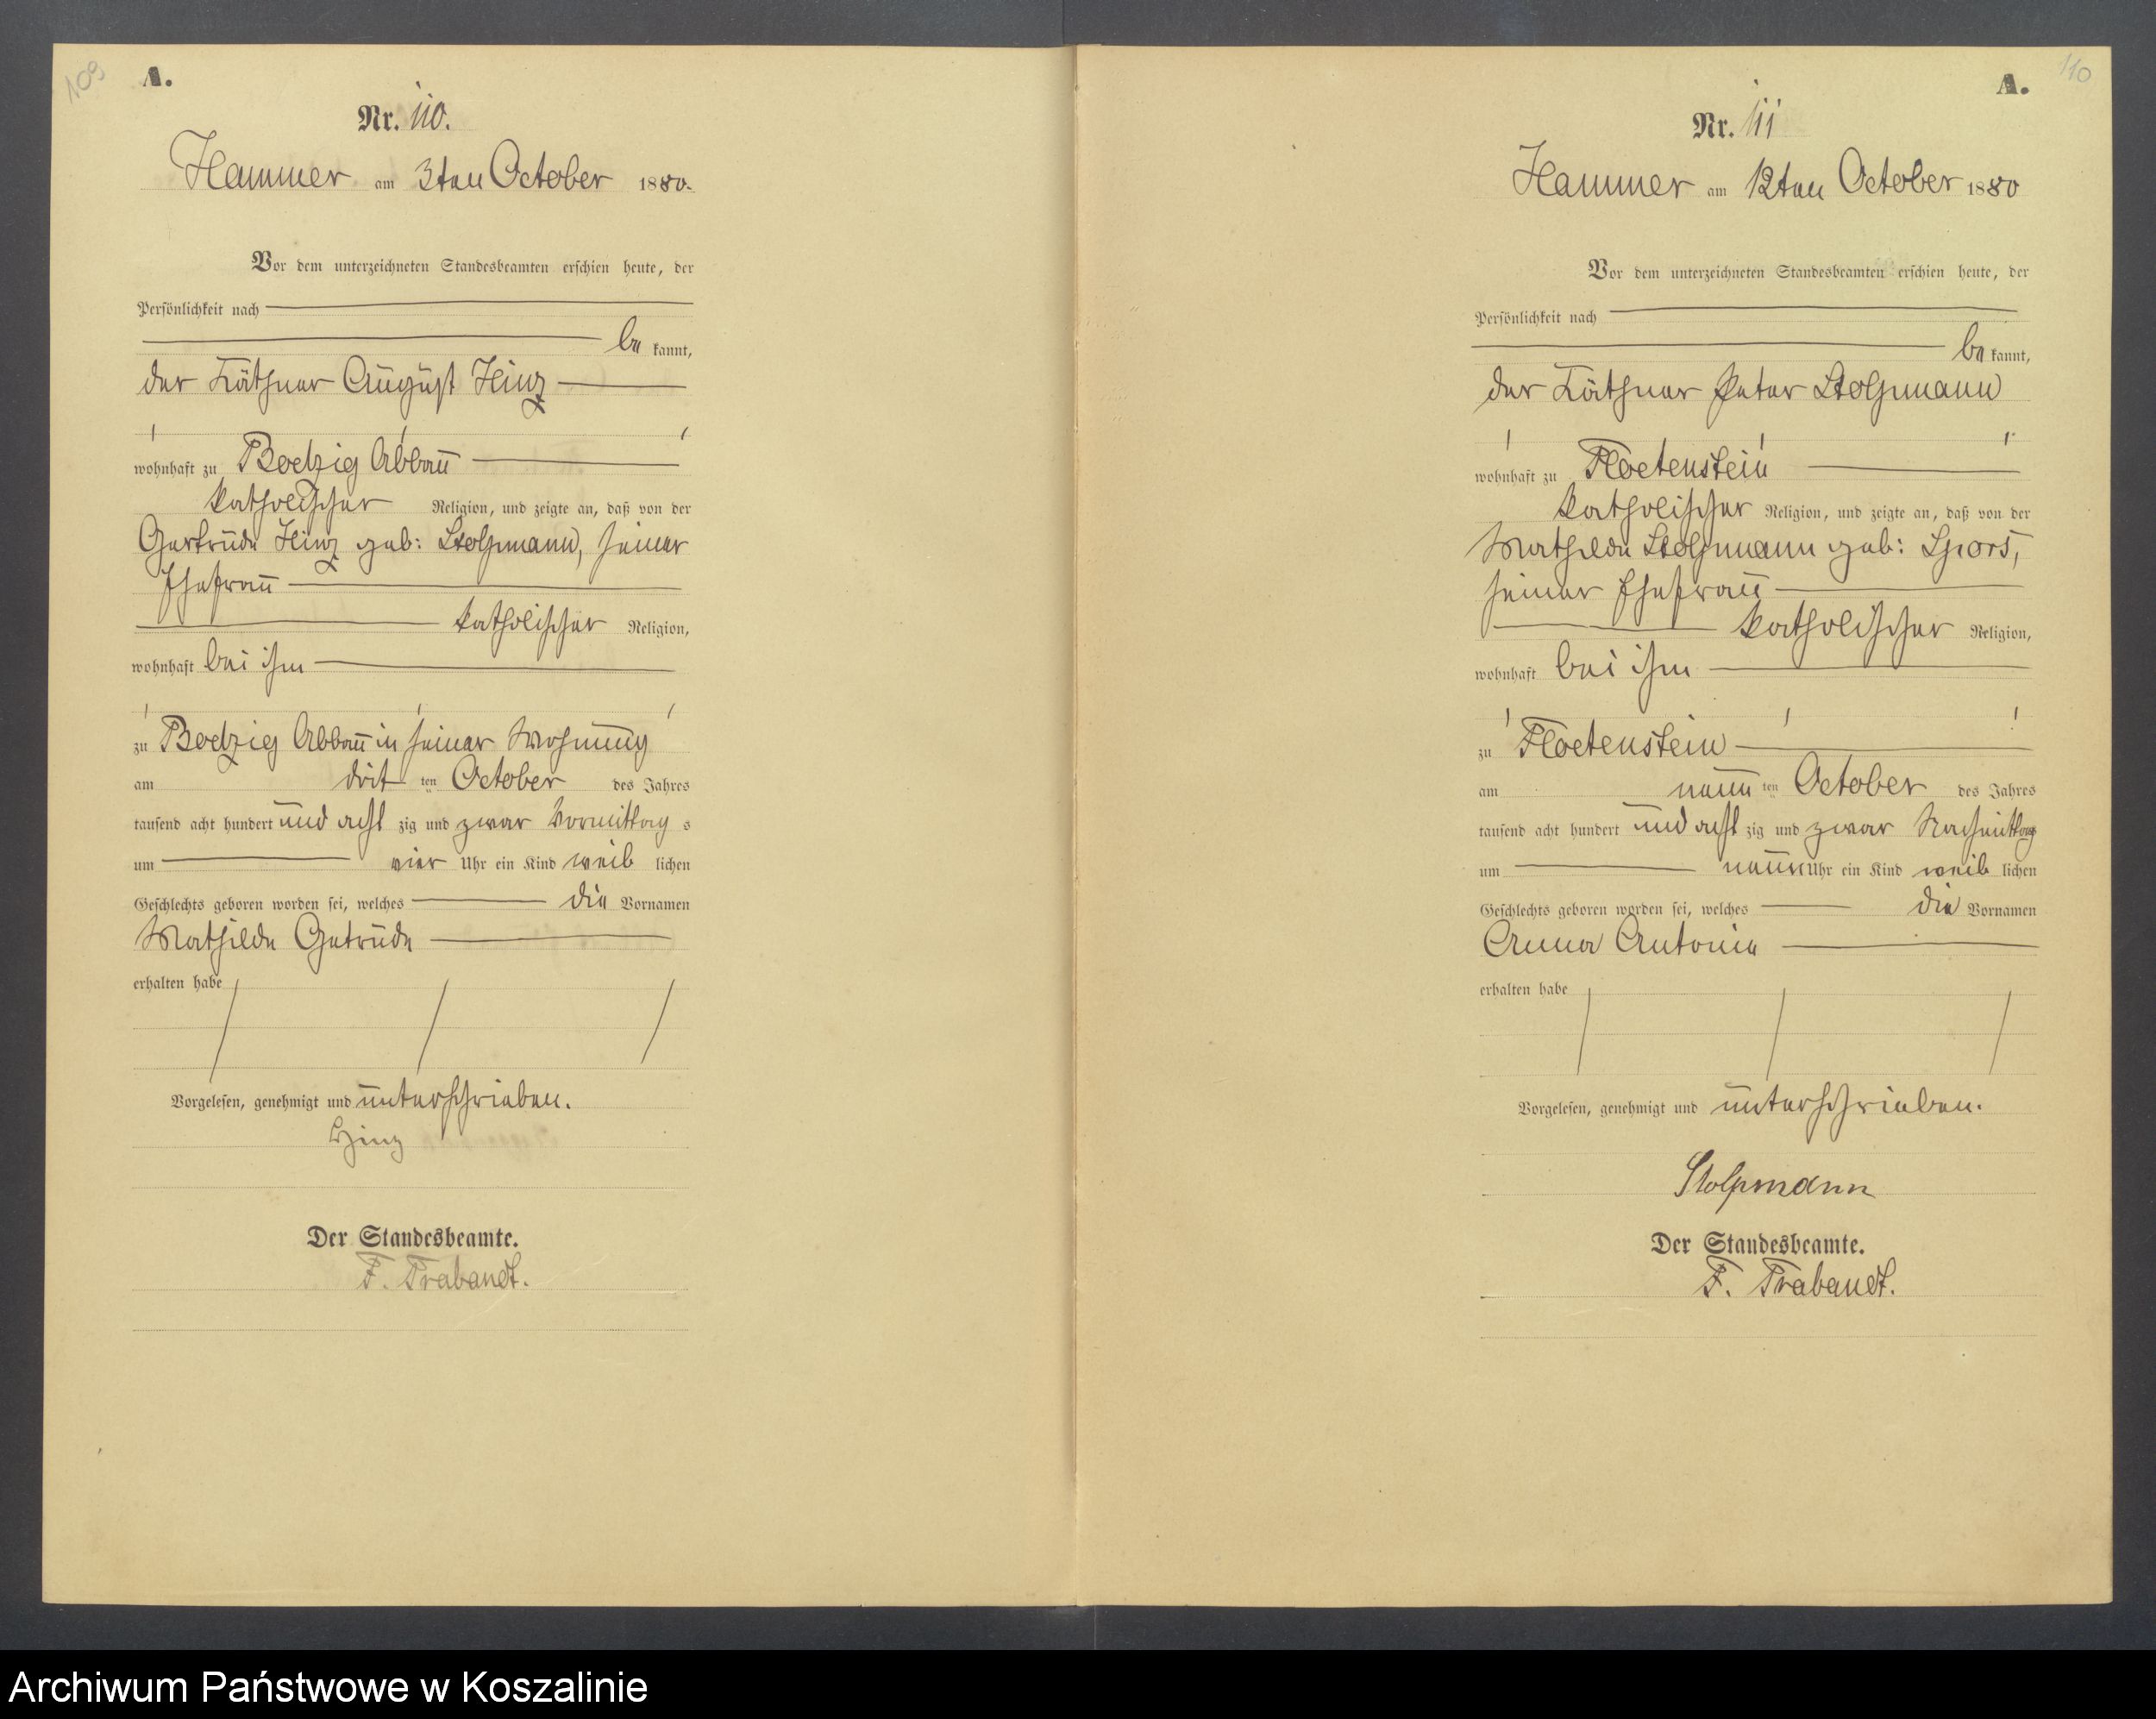 109
A.
Nr. 110.
Hammer am 3ten October 1880.
Vor dem unterzeichneten Standesbeamten erschien heute, der
Persönlichkeit nach
be kannt,
der Käthner August Hinz
wohnhaft zu Boelzig Abbau
katholischer Religion, und zeigte an, daß von der
Gertrude Hinz geb: Stolpmann, seiner
Ehefrau
katholischer Religion,
wohnhaft bei ihm
zu Boelzig Abbau in seiner Wohnung
am drit ten October des Jahres
tausend acht hundert und acht zig und zwar Vormittag s
um vier Uhr ein Kind weib lichen
Geschlechts geboren worden sei, welches die Vornamen
Mathilde Getrude
erhalten habe
Vorgelesen, genehmigt und unterschrieben.
Hinz
Der Standesbeamte.
F. Trabandt.
110
A.
Nr. 111
Hammer am 12ten October 1880
Vor dem unterzeichneten Standesbeamten erschien heute, der
Persönlichkeit nach
be kannt,
der Käthner Peter Stolpmann
wohnhaft zu Floetenstein
katholischer Religion, und zeigte an, daß von der
Mathilde Stolpmann geb: Spors,
seiner Ehefrau
katholischer Religion,
wohnhaft bei ihm
zu Floetenstein
am neun ten October des Jahres
tausend acht hundert und acht zig und zwar Nachmittag
um neun Uhr ein Kind weib lichen
Geschlechts geboren worden sei, welches die Vornamen
Anna Antonie
erhalten habe
Vorgelesen, genehmigt und unterschrieben.
Stolpmann
Der Standesbeamte.
F. Trabandt.
Archiwum Państwowe w Koszalinie